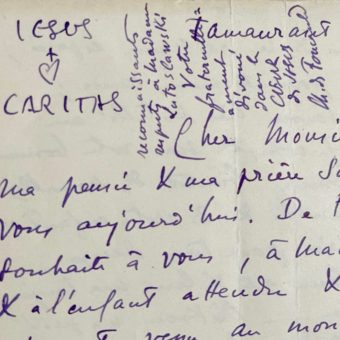 IESUS
+
CARITAS
Tamanrasset
reconnaissants
respects à Madame
Lutoslawski
Votre
fraternellement
dévoué
dans le
CŒUR
de JESUS
Ch. de Foucauld
Cher Monsie
ma pensée & ma prière so
vous aujourd'hui. De
souhaite à vous, à Mad
& à l'enfant attendu &
venu au mon